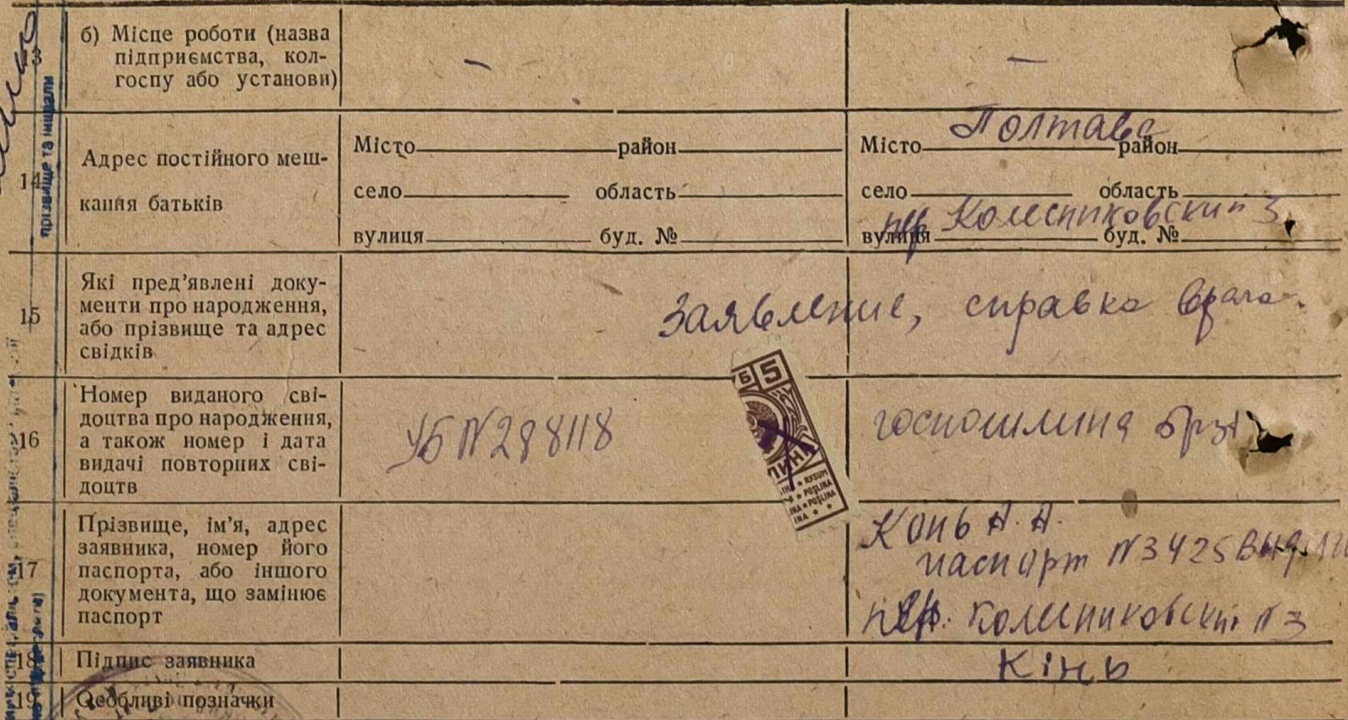 13
б) Місце роботи (назва
підприємства, кол-
госпу або установи)
—
—
14
Адрес постійного меш-
кання батьків
Місто район
село область
вулиця буд. №
Місто Полтава район
село область
вулиця пер Колесниковский 3 буд. №
15
Які пред’явлені доку-
менти про народження,
або прізвище та адрес
свідків
Заявление, справка врача.
16
Номер виданого сві-
доцтва про народження,
а також номер і дата
видачі повторних сві-
доцтв
УБ N 288118
госпошлина 5 рз
Б 5
17
Прізвище, ім’я, адрес
заявника, номер його
паспорта, або іншого
документа, що замінює
паспорт
Конь А. А.
паспорт N 3425
пер. Колесниковский N 3
18
Підпис заявника
Кінь
19
Особливі позначки
прізвище та ініціали